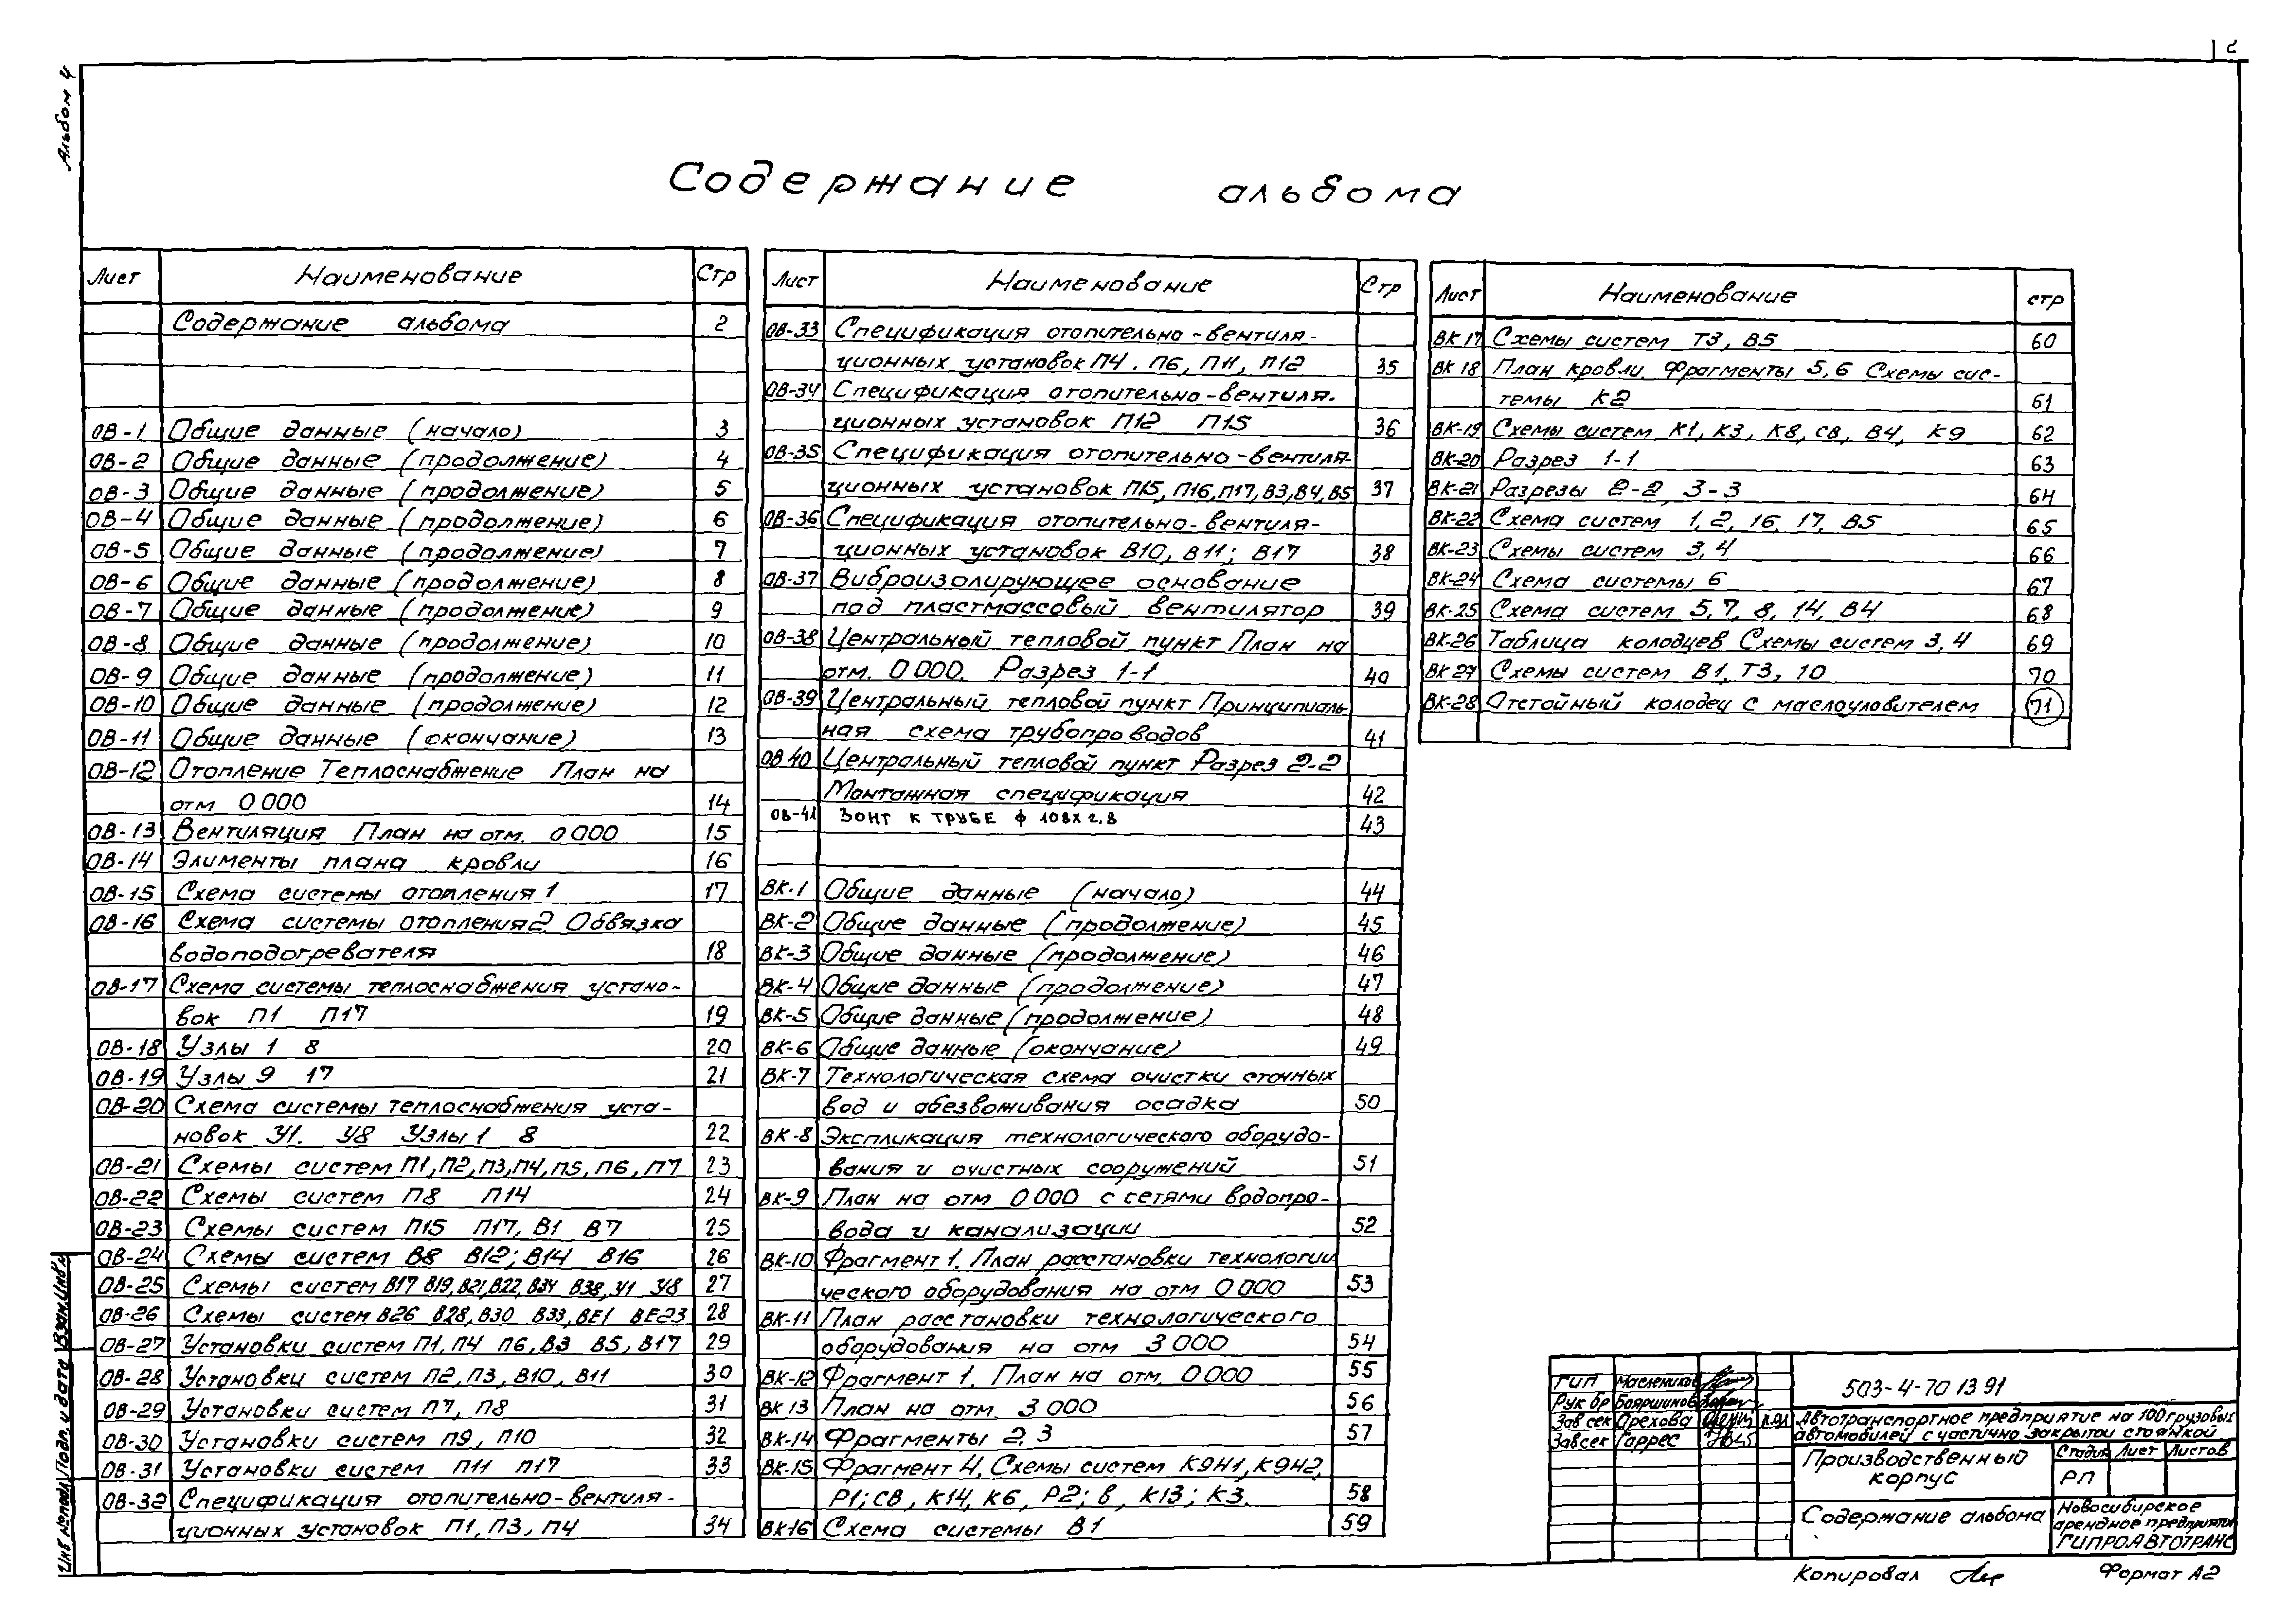 2
Альбом 4
Содержание альбома
Лист Наименование Стр
Содержание альбома 2
ОВ-1 Общие данные (начало) 3
ОВ-2 Общие данные (продолжение) 4
ОВ-3 Общие данные (продолжение) 5
ОВ-4 Общие данные (продолжение) 6
ОВ-5 Общие данные (продолжение) 7
ОВ-6 Общие данные (продолжение) 8
ОВ-7 Общие данные (продолжение) 9
ОВ-8 Общие данные (продолжение) 10
ОВ-9 Общие данные (продолжение) 11
ОВ-10 Общие данные (продолжение) 12
ОВ-11 Общие данные (окончание) 13
ОВ-12 Отопление Теплоснабжение План на
отм 0 000 14
ОВ-13 Вентиляция План на отм. 0 000 15
ОВ-14 Элименты плана кровли 16
ОВ-15 Схема системы отопления 1 17
ОВ-16 Схема системы отопления 2 Обвязка
водоподогревателя 18
ОВ-17 Схема системы теплоснабжения устано-
вок П1 П17 19
ОВ-18 Узлы 1 8 20
ОВ-19 Узлы 9 17 21
ОВ-20 Схема системы теплоснабжения уста-
новок У1. У8 Узлы 1 8 22
ОВ-21 Схемы систем П1, П2, П3, П4, П5, П6, П7 23
ОВ-22 Схемы систем П8 П14 24
ОВ-23 Схемы систем П15 П17, В1 В7 25
ОВ-24 Схемы систем В8 В12; В14 В16 26
ОВ-25 Схемы систем В17 В19, В21, В22, В34 В38, У1 У8 27
ОВ-26 Схемы систем В26 В28, В30 В33, ВЕ1 ВЕ23 28
ОВ-27 Установки систем П1, П4 П6, В3 В5, В17 29
ОВ-28 Установки систем П2, П3, В10, В11 30
ОВ-29 Установки систем П7, П8 31
ОВ-30 Установки систем П9, П10 32
ОВ-31 Установки систем П11 П17 33
ОВ-32 Спецификация отопительно-вентиля-
ционных установок П1, П3, П4 34
Лист Наименование Стр
ОВ-33 Спецификация отопительно-вентиля-
ционных установок П4. П6, П11, П12 35
ОВ-34 Спецификация отопительно-вентиля-
ционных установок П12 П15 36
ОВ-35 Спецификация отопительно-вентиля-
ционных установок П15, П16, П17, В3, В4, В5 37
ОВ-36 Спецификация отопительно-вентиля-
ционных установок В10, В11; В17 38
ОВ-37 Виброизолирующее основание
под пластмассовый вентилятор 39
ОВ-38 Центральный тепловой пункт План на
отм. 0 000. Разрез 1-1 40
ОВ-39 Центральный тепловой пункт Принципиаль-
ная схема трубопроводов 41
ОВ 40 Центральный тепловой пункт Разрез 2-2
Монтажная спецификация 42
ОВ-41 ЗОНТ К ТРУБЕ ф 108х2.8 43
ВК-1 Общие данные (начало) 44
ВК-2 Общие данные (продолжение) 45
ВК-3 Общие данные (продолжение) 46
ВК-4 Общие данные (продолжение) 47
ВК-5 Общие данные (продолжение) 48
ВК-6 Общие данные (окончание) 49
ВК-7 Технологическая схема очистки сточных
вод и обезвоживания осадка 50
ВК-8 Экспликация технологического оборудо-
вания и очистных сооружений 51
ВК-9 План на отм 0 000 с сетями водопро-
вода и канализации 52
ВК-10 Фрагмент 1. План расстановки технологи
ческого оборудования на отм 0 000 53
ВК-11 План расстановки технологического
оборудования на отм 3 000 54
ВК-12 Фрагмент 1. План на отм. 0 000 55
ВК 13 План на отм. 3 000 56
ВК-14 Фрагменты 2, 3 57
ВК-15 Фрагмент 4, Схемы систем К9Н1, К9Н2,
Р1; СВ, К14, К6, Р2; В, К13; К3. 58
ВК-16 Схема системы В1 59
Лист Наименование стр
ВК 17 Схемы систем Т3, В5 60
ВК 18 План кровли. Фрагменты 5, 6 Схемы сис-
темы К2 61
ВК-19 Схемы систем К1, К3, К8, СВ, В4, К9 62
ВК-20 Разрез 1-1 63
ВК-21 Разрезы 2-2, 3-3 64
ВК-22 Схема систем 1, 2, 16, 17, В5 65
ВК-23 Схемы систем 3, 4 66
ВК-24 Схема системы 6 67
ВК-25 Схема систем 5, 7, 8, 14, В4 68
ВК-26 Таблица колодцев Схемы систем 3, 4 69
ВК 27 Схемы систем В1, Т3, 10 70
ВК-28 Отстойный колодец с маслоуловителем 71
Инв № подл Подп. и дата Взам. Инв №
ГИП Маслеников
Рук бр Бояршинов
Зав сек Орехова
Зав сек Гаррес
503-4-70 13 91
Автотранспортное предприятие на 100 грузовых
автомобилей с частично закрытой стоянкой
Производственный
корпус
Стадия Лист Листов
РП
Содержание альбома
Новосибирское
арендное предприятие
ГИПРОАВТОТРАНС
Копировал
Формат А2